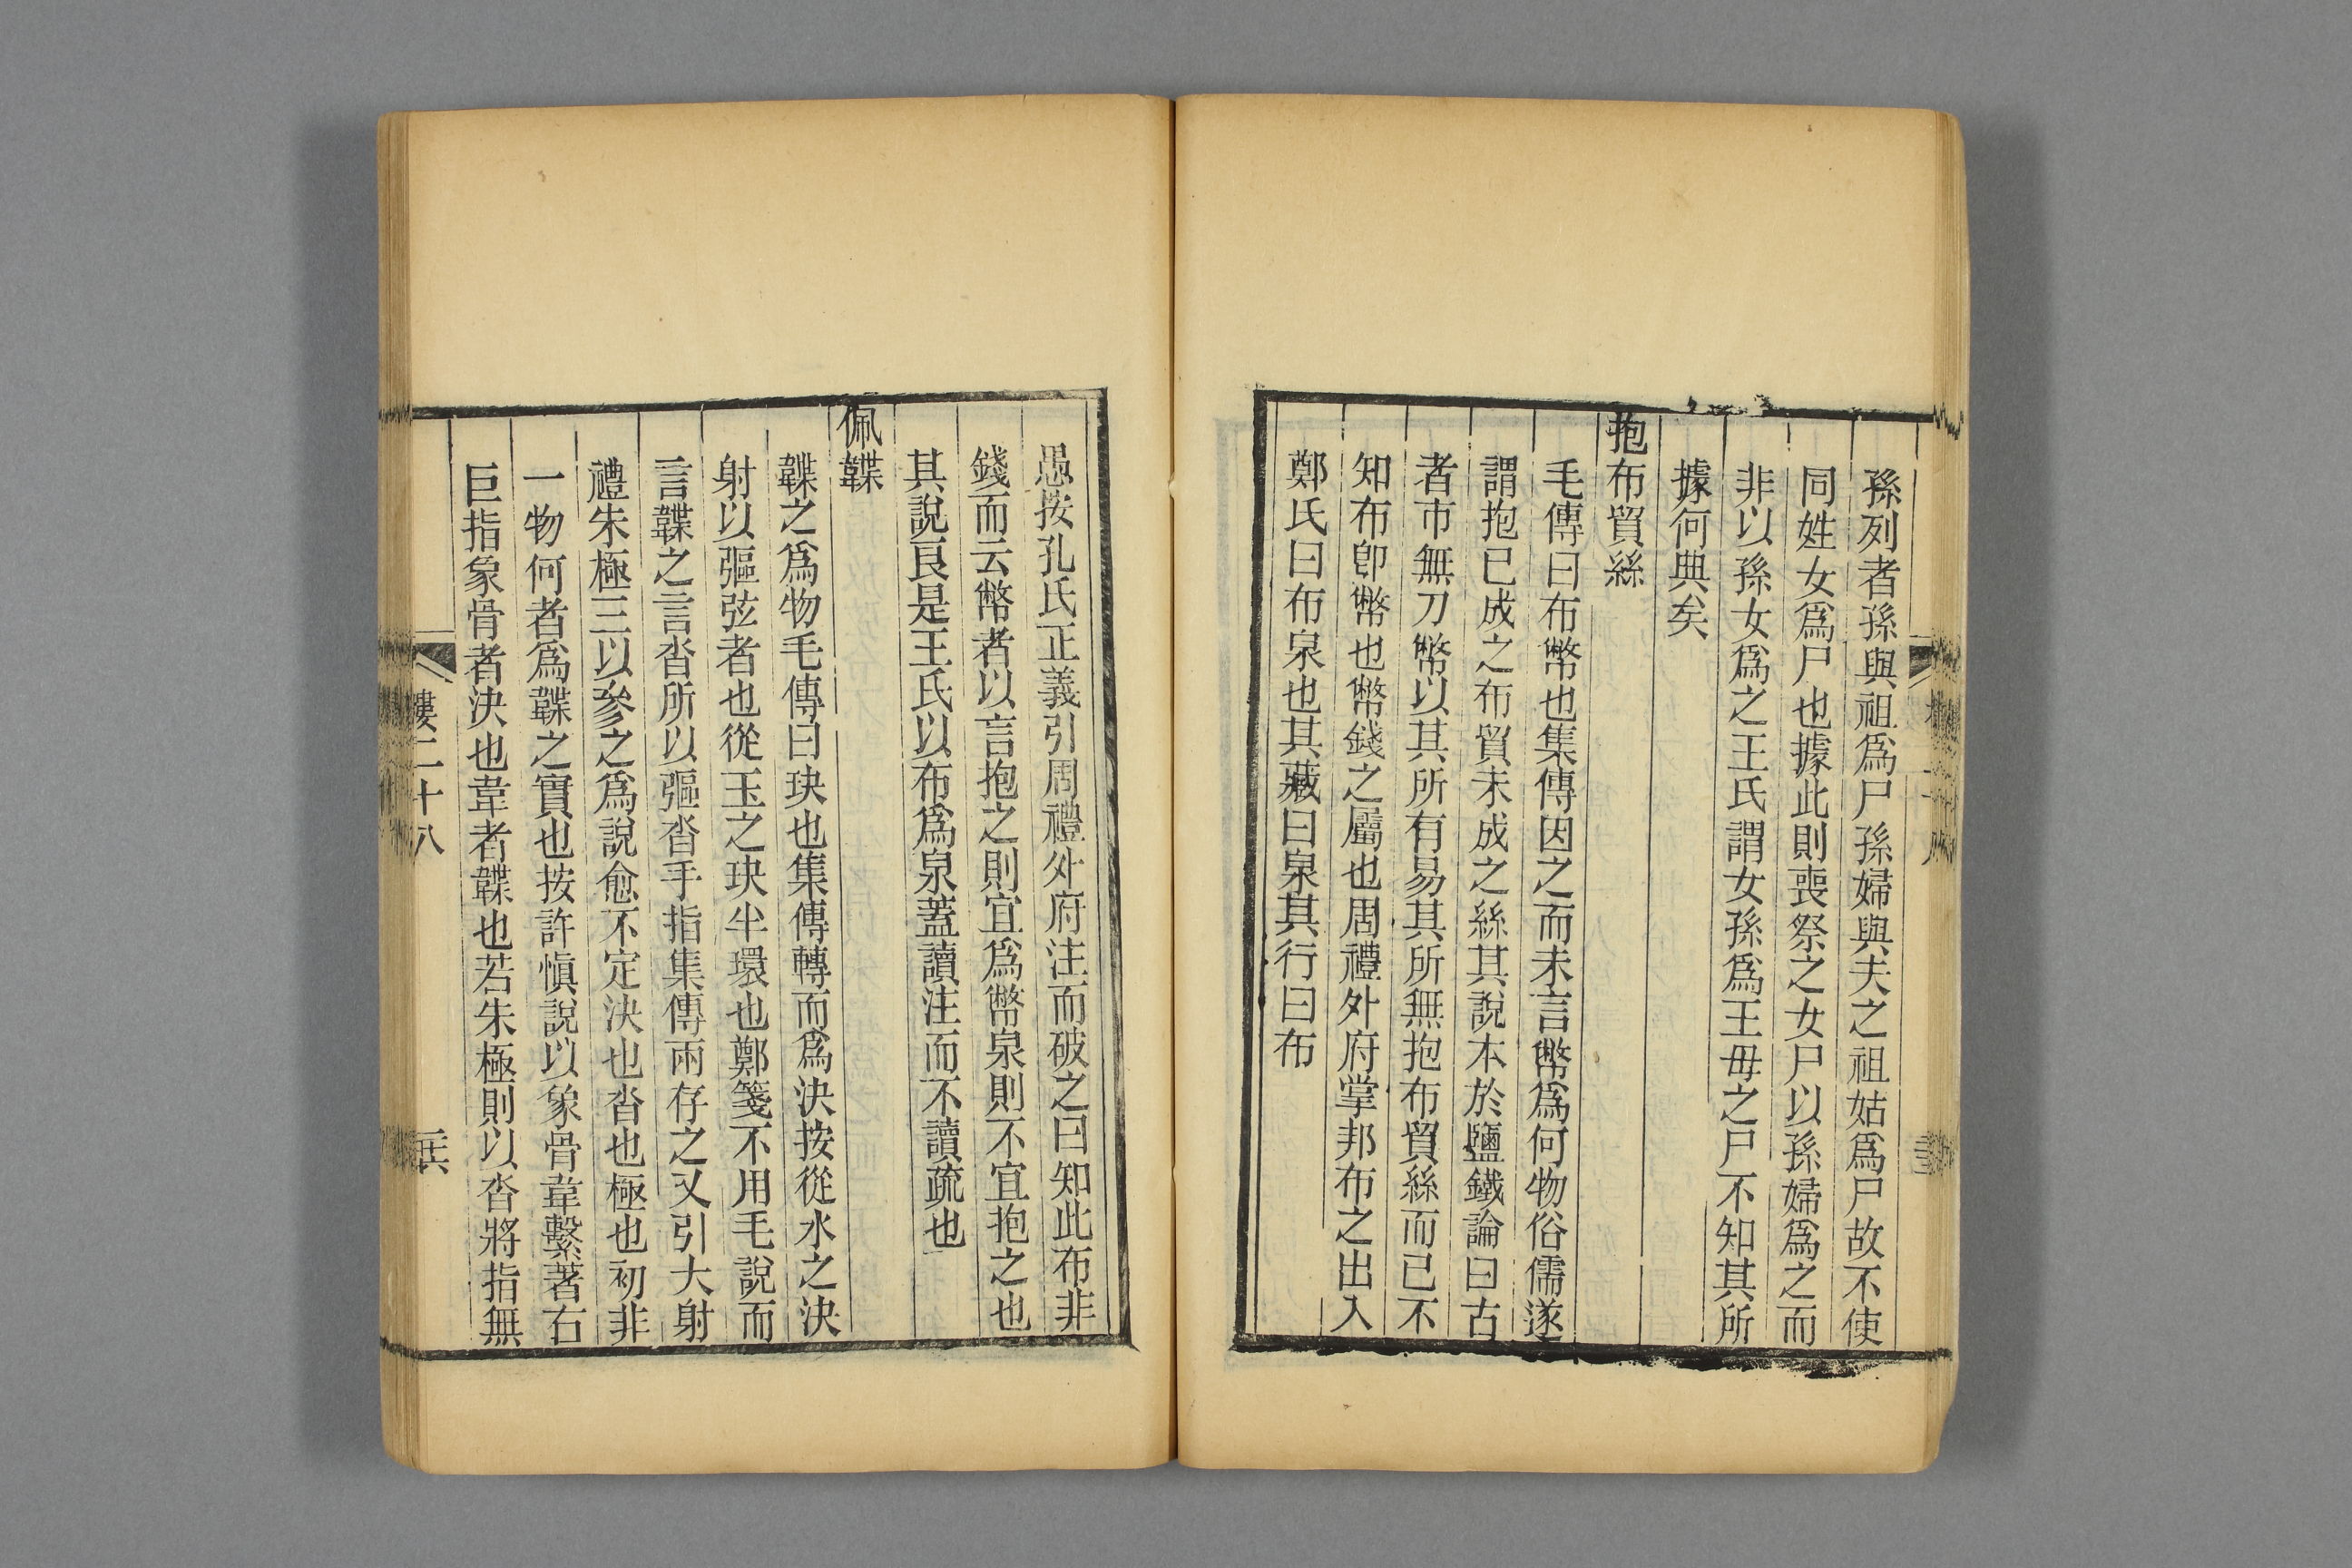 孫列者孫與祖爲尸孫婦與夫之祖姑爲尸故不使
同姓女爲尸也據此則喪祭之女尸以孫婦爲之而
非以孫女爲之王氏謂女孫爲王毋之尸不知其所
據何典矣
抱布貿絲
毛傳曰布幣也集傳因之而未言幣爲何物俗儒遂
謂抱已成之布貿未成之絲其說本於鹽鐵論曰古
者市無刀幣以其所有易其所無抱布貿絲而已不
知布卽幣也幣錢之屬也周禮外府掌邦布之出入
鄭氏曰布泉也其藏曰泉其行曰布
愚按孔氏正義引周禮外府注而破之曰知此布非
錢而云幣者以言抱之則宜爲幣泉則不宜抱之也
其說良是王氏以布爲泉蓋讀注而不讀疏也
佩韘
韘之爲物毛傳曰玦也集傳轉而爲決按從水之決
射以彄弦者也從玉之玦半環也鄭箋不用毛說而
言韘之言沓所以彄沓手指集傳兩存之又引大射
禮朱極三以參之爲說愈不定決也沓也極也初非
一物何者爲韘之實也按許愼說以象骨韋繫著右
巨指象骨者決也韋者韘也若朱極則以沓將指無
樓二十八